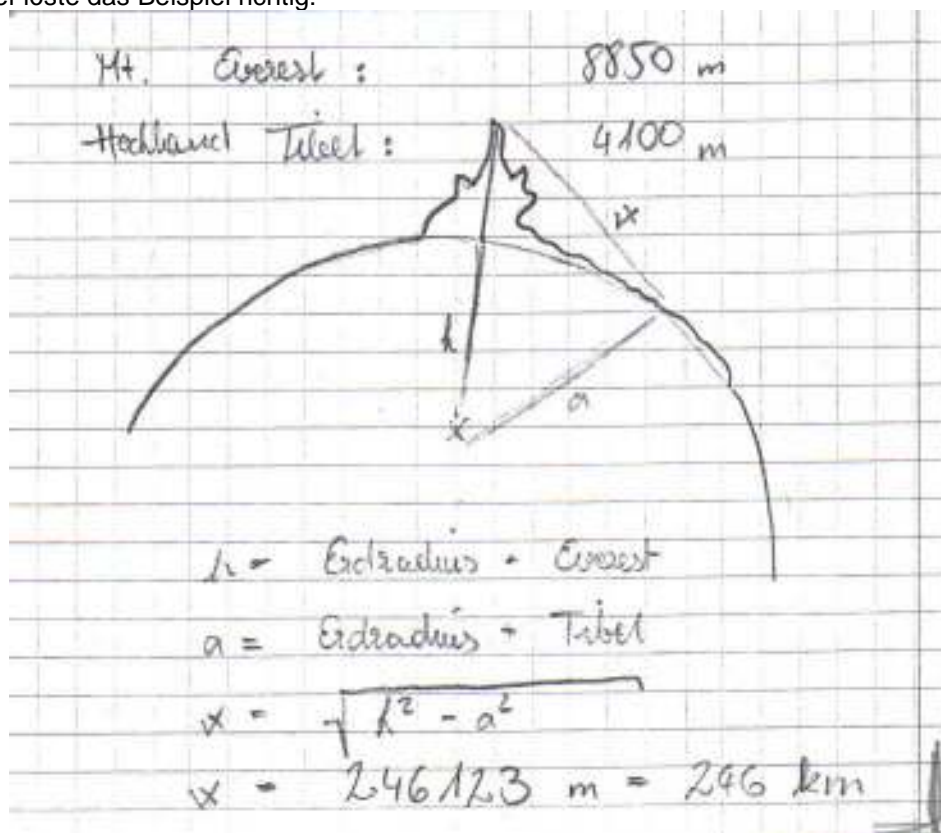 er löste das Beispiel richtig.
Mt. Everest : 8850 m
Hochland Tibet : 4100 m
x
h
a
h = Erdradius + Everest
a = Erdradius + Tibet
x = √h² - a²
x = 246123 m = 246 km